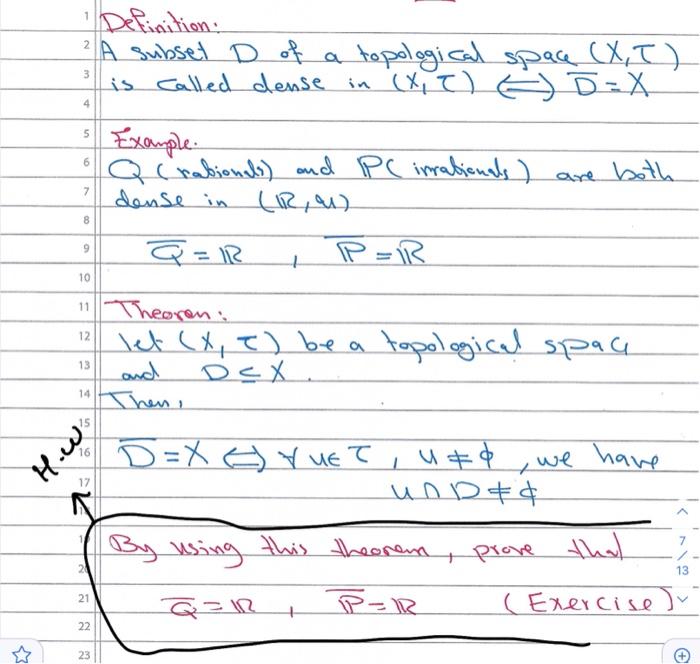 1 Definition:
2 A subset D of a topological space (X, τ)
3 is called dense in (X, τ) ⟺ D̅ = X
4
5 Example.
6 Q (rationals) and ℙ( irrationals ) are both
7 dense in (ℝ, 𝒰)
8
9 Q̅ = ℝ , ℙ̅ = ℝ
10
11 Theorem:
12 let (X, τ) be a topological space
13 and D ⊆ X .
14 Then,
15
16 D̅ = X ⟺ ∀ u ∈ τ , u ≠ ϕ , we have
H.W
17 u ∩ D ≠ ϕ
By using this theorem, prove that
7
/
13
21 Q̅ = ℝ , ℙ̅ = ℝ (Exercise)
22
23